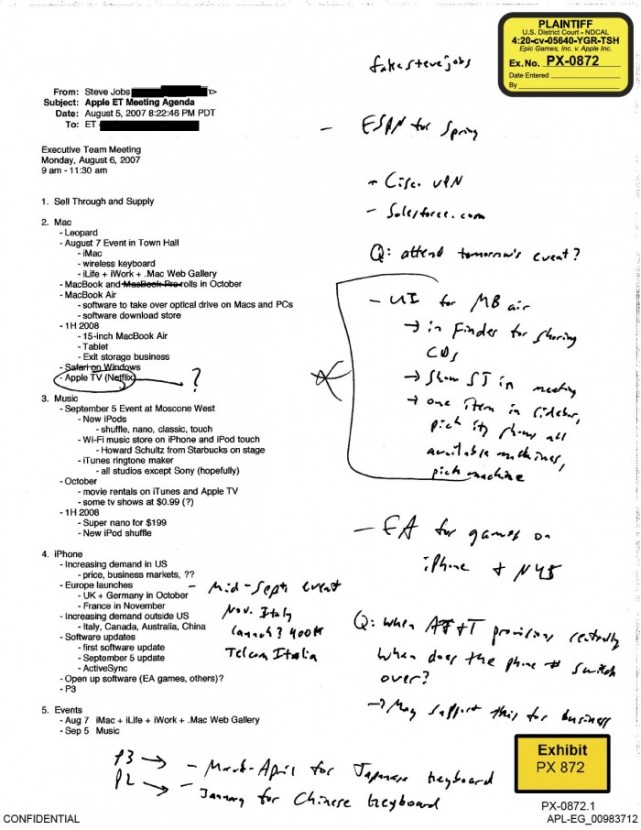 PLAINTIFF
U.S. District Court - NDCAL
4:20-cv-05640-YGR-TSH
Epic Games, Inc. v. Apple Inc.
Ex. No. PX-0872
Date Entered
By
fakestevejobs
From: Steve Jobs
Subject: Apple ET Meeting Agenda
Date: August 5, 2007 8:22:46 PM PDT
To: ET
- ESPN for Spring
Executive Team Meeting
Monday, August 6, 2007
9 am - 11:30 am
- Cisco VPN
- Salesforce.com
Q: attend tomorrow's event?
1. Sell Through and Supply
2. Mac
- Leopard
- August 7 Event in Town Hall
- iMac
- wireless keyboard
- iLife + iWork + .Mac Web Gallery
- MacBook and MacBook Pro rolls in October
- MacBook Air
- software to take over optical drive on Macs and PCs
- software download store
- 1H 2008
- 15-inch MacBook Air
- Tablet
- Exit storage business
- Safari on Windows
- Apple TV (Netflix) ?
- UI for MB air
→ in Finder for sharing
CDs
→ Show SJ in meeting
→ one item in sidebar,
pick it, shows all
available machines,
pick machine
3. Music
- September 5 Event at Moscone West
- New iPods
- shuffle, nano, classic, touch
- Wi-Fi music store on iPhone and iPod touch
- Howard Schultz from Starbucks on stage
- iTunes ringtone maker
- all studios except Sony (hopefully)
- October
- movie rentals on iTunes and Apple TV
- some tv shows at $0.99 (?)
- 1H 2008
- Super nano for $199
- New iPod shuffle
- EA for games on
iPhone +
4. iPhone
- Increasing demand in US
- price, business markets, ??
- Europe launches
- UK + Germany in October
- France in November
- Increasing demand outside US
- Italy, Canada, Australia, China
- Software updates
- first software update
- September 5 update
- ActiveSync
- Open up software (EA games, others)?
- P3
- Mid-Sept event
Nov. Italy
launch? 400K
Telecom Italia
Q: When AT&T provisions centrally
when does the phone # switch
over?
→ May support this for business
5. Events
- Aug 7 iMac + iLife + iWork + .Mac Web Gallery
- Sep 5 Music
P3 → - March-April for Japanese keyboard
P2 → - January for Chinese keyboard
Exhibit
PX 872
PX-0872.1
CONFIDENTIAL
APL-EG_00983712